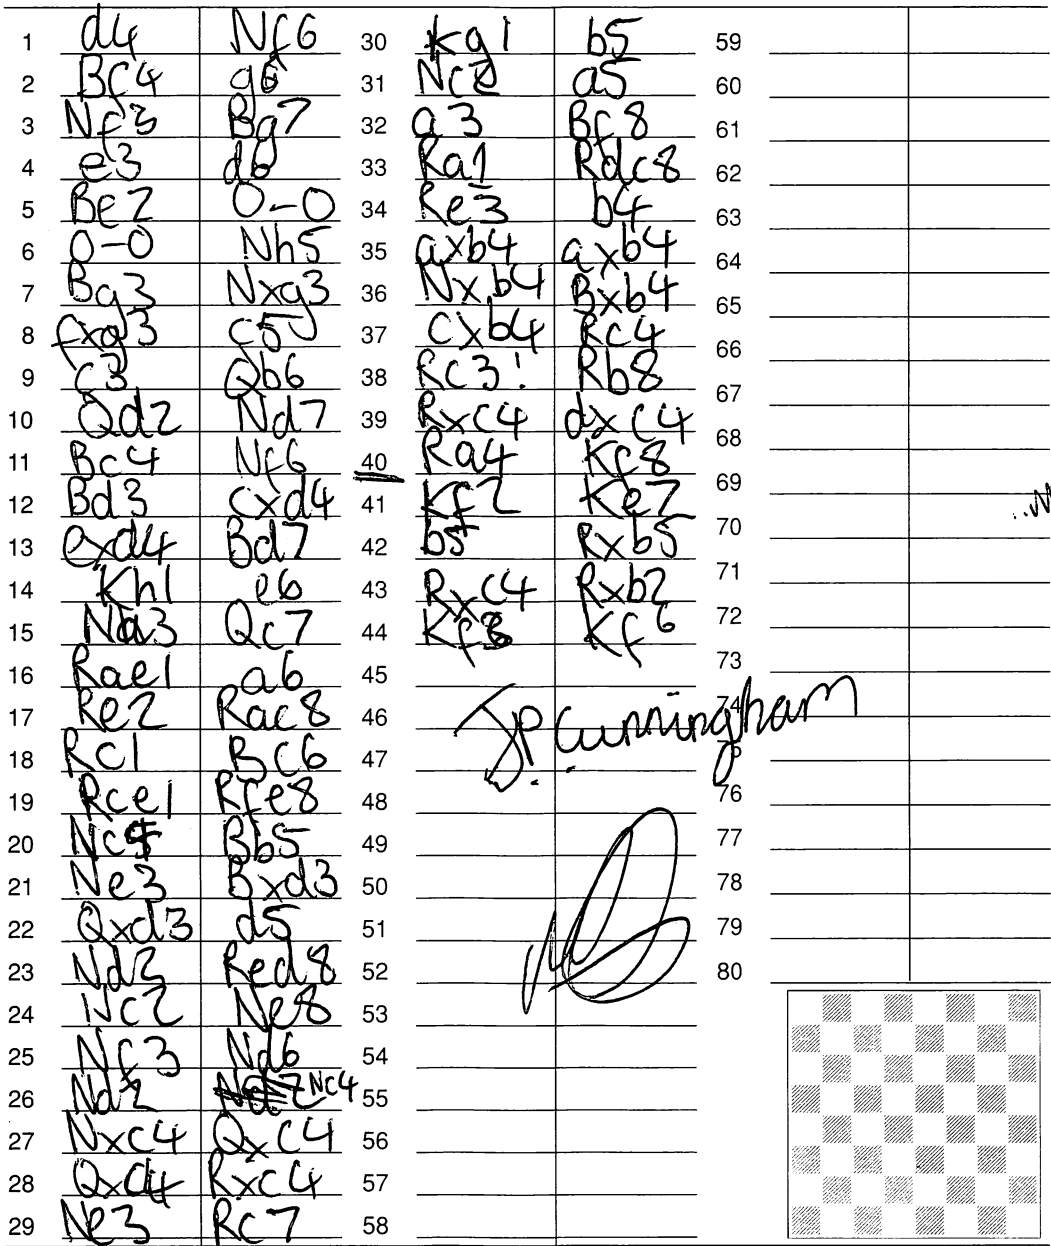 1 d4 Nf6
2 Bf4 g6
3 Nf3 Bg7
4 e3 d6
5 Be2 O-O
6 O-O Nh5
7 Bg3 Nxg3
8 fxg3 c5
9 c3 Qb6
10 Qd2 Nd7
11 Bc4 Nf6
12 Bd3 cxd4
13 exd4 Bd7
14 Kh1 e6
15 Na3 Qc7
16 Rae1 a6
17 Re2 Rac8
18 Rc1 Bc6
19 Rce1 Rfe8
20 Bb5
21 Ne3 Bxd3
22 Qxd3 d5
23 Nd2 Red8
24 Nc2 Ne8
25 Nf3 Nd6
26 Nd2 Nc4
27 Nxc4 Qxc4
28 Rxc4
29 Ne3 Rc7
30 Kg1 b5
31 Nc2 a5
32 a3 Bf8
33 Ra1 Rdc8
34 Re3 b4
35 axb4 axb4
36 Nxb4 Bxb4
37 cxb4 Rc4
38 Rc3! Rb8
39 Rxc4 dxc4
40 Ra4 Kf8
41 Kf2 Ke7
42 b5 Rxb5
43 Rxc4 Rxb2
44 Kf3 Kf6
45
46 J.P. Cunningham
47
48
49
50
51
52
53
54
55
56
57
58
59
60
61
62
63
64
65
66
67
68
69
70
71
72
73
74
75
76
77
78
79
80